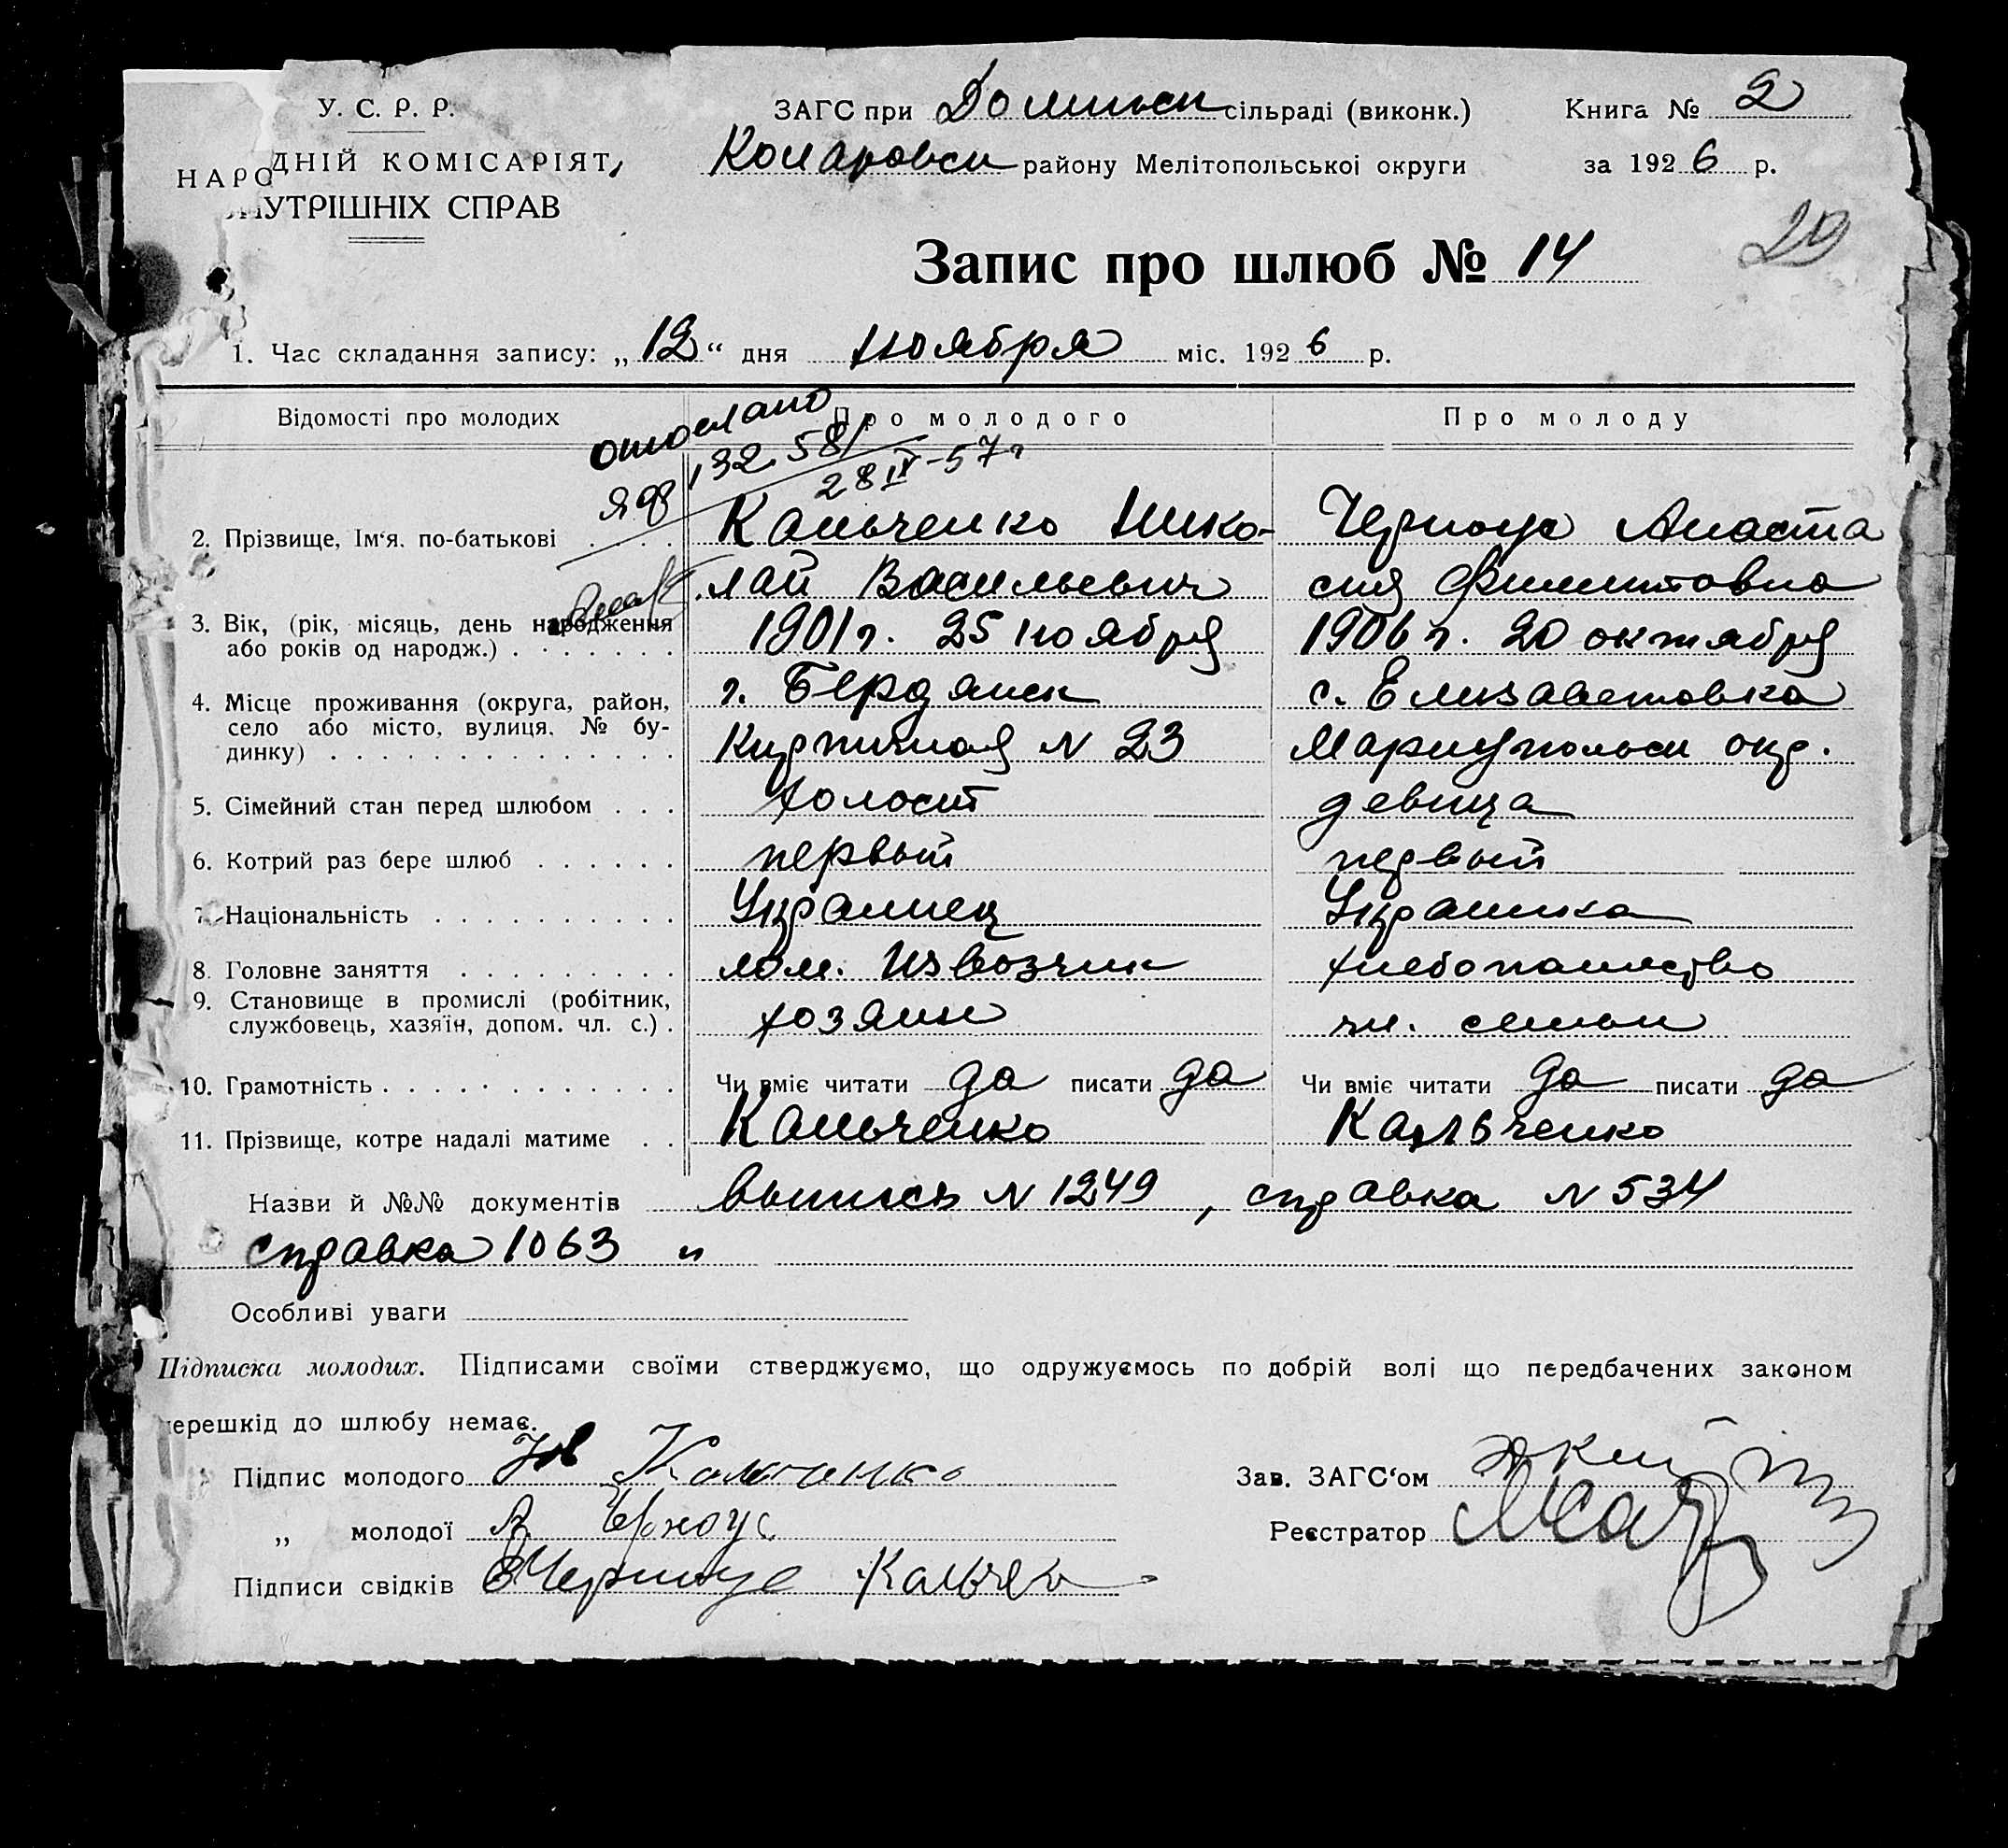 У. С. Р. Р.
НАРОДНІЙ КОМІСАРІЯТ
ВНУТРІШНІХ СПРАВ
ЗАГС при Долинск сільраді (виконк.)
Коларовск району Мелітопольської округи
Книга № 2
за 1926 р.
20
Запис про шлюб № 14
1. Час складання запису: „12“ дня ноября міс. 1926 р.
Відомості про молодих Про молодого Про молоду
отослано
ЯФ 132581
28 IX-57 г
2. Прізвище, Ім‘я. по-батькові . . . . Кальченко Нико- Черноус Анаста
лай Васильевич сия Филиповна
3. Вік, (рік, місяць, день народження 1901 г. 25 ноября 1906 г. 20 октября
або років од народж.) . . . . . . .
4. Місце проживання (округа, район, г. Бердянск с. Елизаветовка
село або місто, вулиця. № бу- Кирпичная N 23 Мариупольск окр.
динку) . . . . . . . . . . . . . .
5. Сімейний стан перед шлюбом . . . холост девица
6. Котрий раз бере шлюб . . . . . . первый первый
7. Національність . . . . . . . . . . Украинец Украинка
8. Головне заняття . . . . . . . . . лом. извозчик хлебопашество
9. Становище в промислі (робітник, хозяин чл. семьи
службовець, хазяїн, допом. чл. с.) .
10. Грамотність . . . . . . . . . . . . Чи вміє читати да писати да Чи вміє читати да писати да
11. Прізвище, котре надалі матиме . . Кальченко Кальченко
Назви й №№ документів выпись N 1249, справка N 534
справка 1063 „
Особливі уваги
Підписка молодих. Підписами своїми стверджуємо, що одружуємось по добрій волі що передбачених законом
перешкід до шлюбу немає.
Підпис молодого Кальченко Зав. ЗАГС‘ом
„ молодої А. Черноус Реєстратор
Підписи свідків Черноус